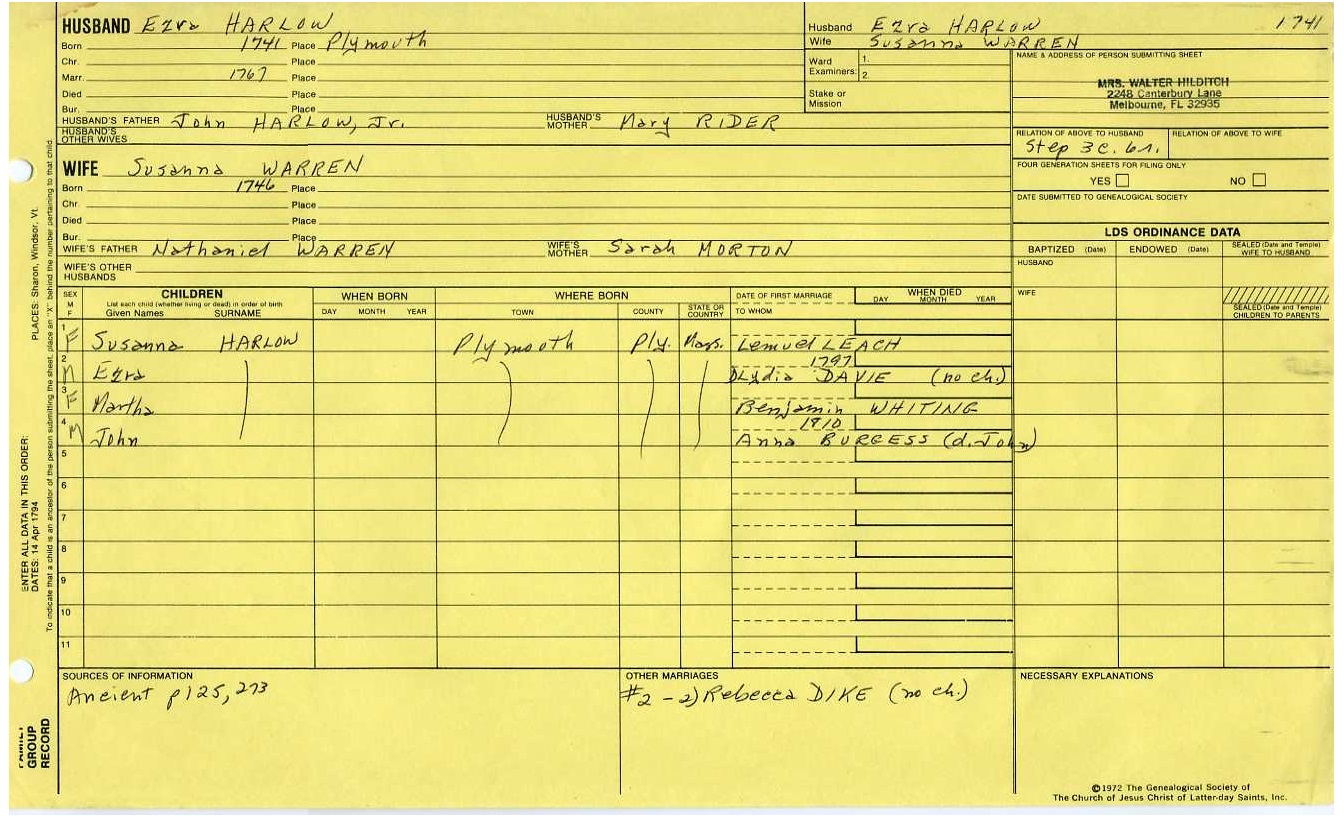 HUSBAND Ezra HARLOW
Born 1741 Place Plymouth
Chr. Place
Marr. 1767 Place
Died Place
Bur. Place
HUSBAND'S FATHER John HARLOW, Jr. HUSBAND'S MOTHER Mary RIDER
HUSBAND'S OTHER WIVES
Husband Ezra HARLOW 1741
Wife Susanna WARREN
Ward Examiners: 1.
2.
Stake or Mission
NAME & ADDRESS OF PERSON SUBMITTING SHEET
MRS. WALTER HILDITCH
2248 Canterbury Lane
Melbourne, FL 32935
RELATION OF ABOVE TO HUSBAND RELATION OF ABOVE TO WIFE
Step 3c. 6r.
FOUR GENERATION SHEETS FOR FILING ONLY
YES NO
DATE SUBMITTED TO GENEALOGICAL SOCIETY
WIFE Susanna WARREN
Born 1746 Place
Chr. Place
Died Place
Bur. Place
WIFE'S FATHER Nathaniel WARREN WIFE'S MOTHER Sarah MORTON
WIFE'S OTHER HUSBANDS
LDS ORDINANCE DATA
BAPTIZED (Date) ENDOWED (Date) SEALED (Date and Temple) WIFE TO HUSBAND
HUSBAND
WIFE
SEALED (Date and Temple) CHILDREN TO PARENTS
SEX M F CHILDREN WHEN BORN WHERE BORN DATE OF FIRST MARRIAGE WHEN DIED
List each child (whether living or dead) in order of birth
Given Names SURNAME DAY MONTH YEAR TOWN COUNTY STATE OR COUNTRY TO WHOM DAY MONTH YEAR
1 F Susanna HARLOW Plymouth Ply. Mass. Lemuel LEACH
1797
2 M Ezra Lydia DAVIE (no ch.)
3 F Martha Benjamin WHITING
1810
4 M John Anna BURGESS (d. John)
5
6
7
8
9
10
11
SOURCES OF INFORMATION
Ancient p125, 273
OTHER MARRIAGES
#2 - 2) Rebecca DIKE (no ch.)
NECESSARY EXPLANATIONS
©1972 The Genealogical Society of
The Church of Jesus Christ of Latter-day Saints, Inc.
PLACES: Sharon, Windsor, Vt.
To indicate that a child is an ancestor of the person submitting the sheet, place an "X" behind the number pertaining to that child.
ENTER ALL DATA IN THIS ORDER:
DATES: 14 Apr 1794
FAMILY GROUP RECORD